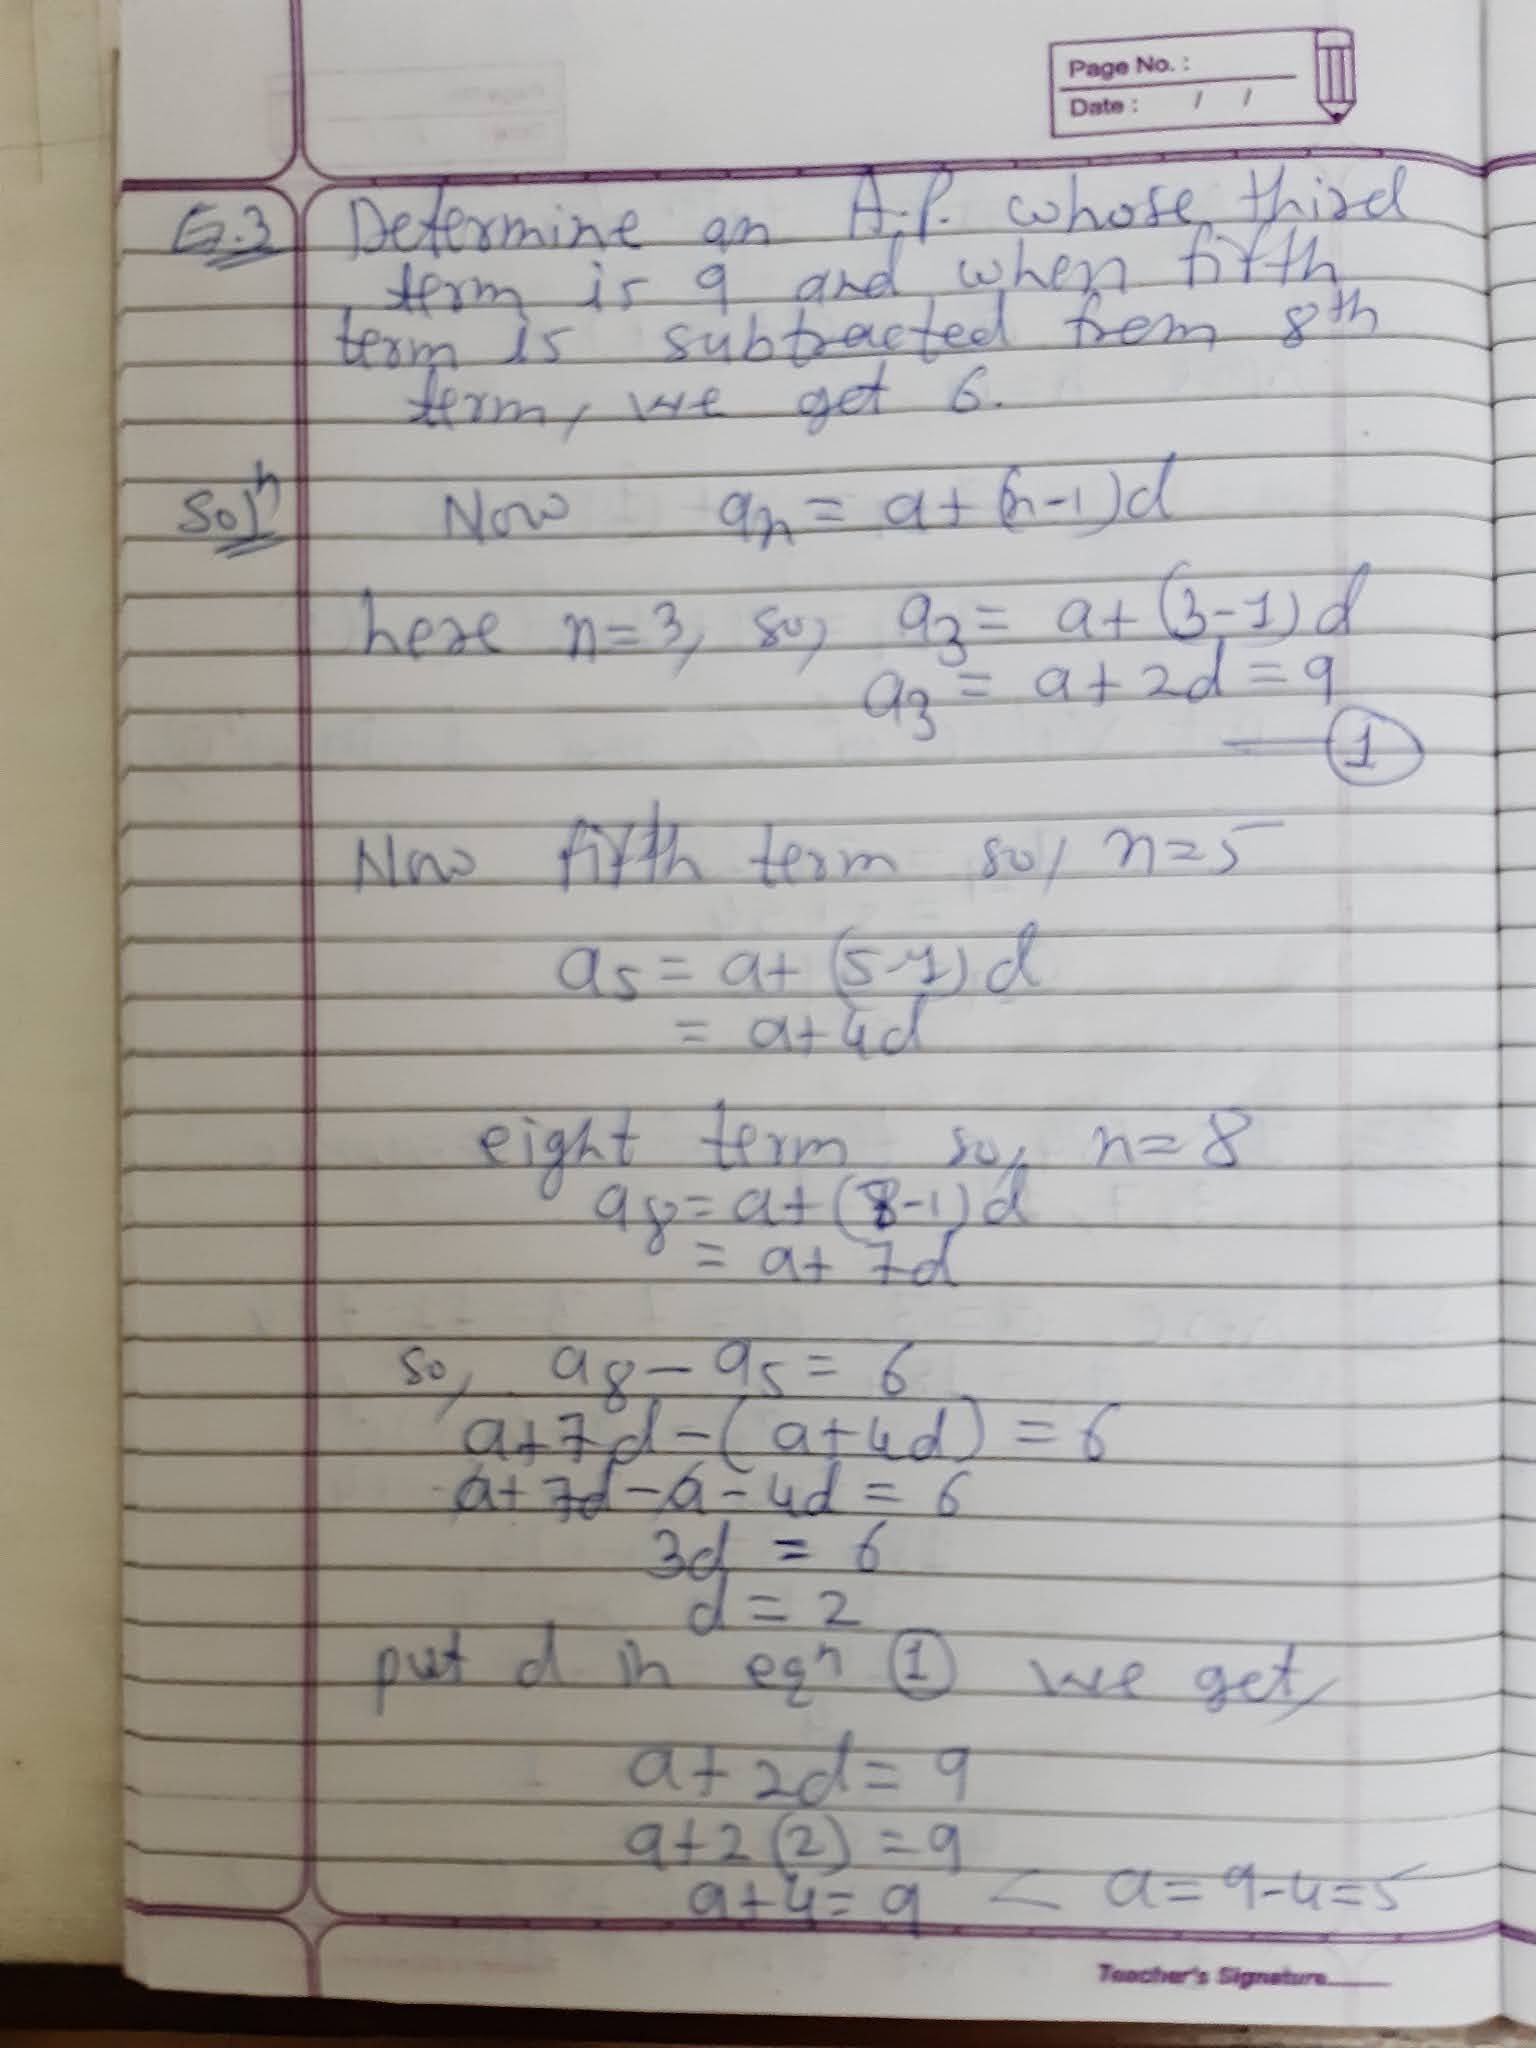 Page No. :
Date : / /
G.3 Determine an A.P. whose third
term is 9 and when fifth
term is subtracted from 8th
term, we get 6.
Solⁿ Now aₙ = a+(n-1)d
here n=3, so, a₃ = a+(3-1)d
a₃ = a+2d=9
—①
Now fifth term so, n=5
a₅ = a+(5-1)d
= a+4d
eight term so, n=8
a₈ = a+(8-1)d
= a+7d
so, a₈-a₅ = 6
a+7d-(a+4d) = 6
a+7d-a-4d = 6
3d = 6
d = 2
put d in eqⁿ ① we get,
a+2d = 9
a+2(2) = 9
a+4=9 < a=9-4=5
Teacher's Signature